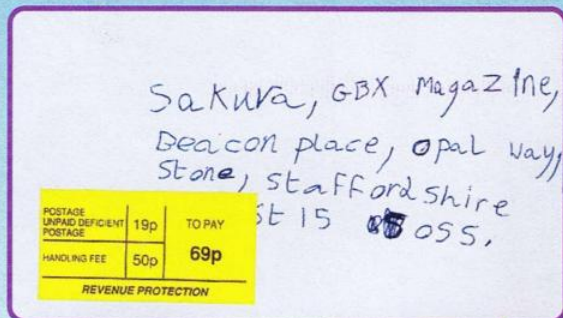 Sakura, GBX Magazine,
Beacon place, opal way,
Stone, Staffordshire
St 15 0SS.
POSTAGE
UNPAID DEFICIENT
POSTAGE
19p
TO PAY
HANDLING FEE
50p
69p
REVENUE PROTECTION